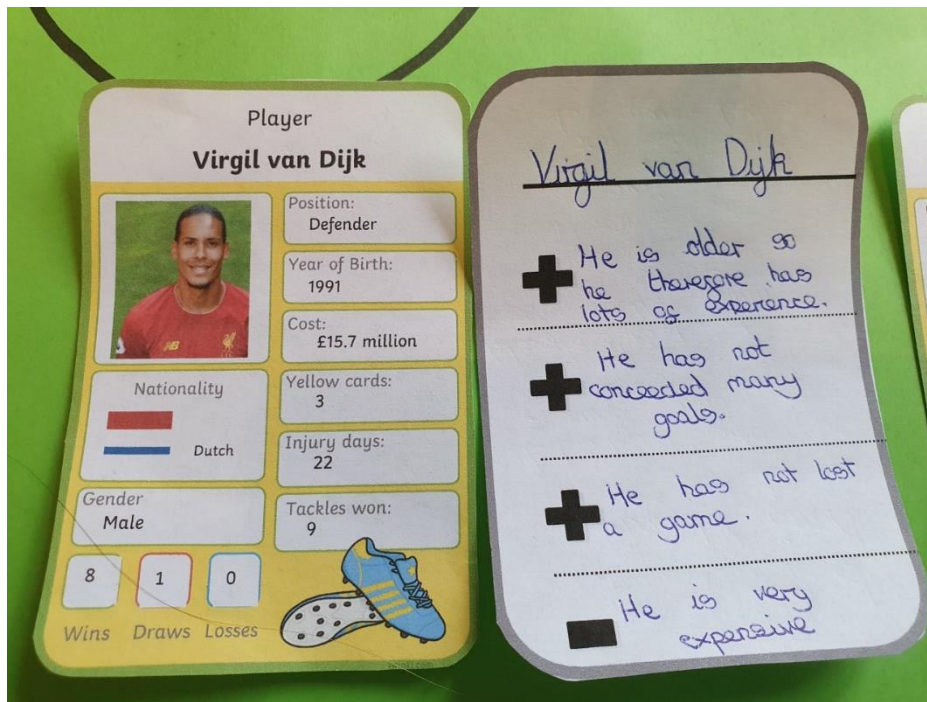 Player
Virgil van Dijk
Position:
Defender
Year of Birth:
1991
Cost:
£15.7 million
Nationality
Dutch
Yellow cards:
3
Injury days:
22
Gender
Male
Tackles won:
9
8
1
0
Wins
Draws
Losses
NB
Virgil van Dijk
He is older so
he therefore has
lots of experience.
He has not
conceeded many
goals.
He has not lost
a game.
He is very
expensive